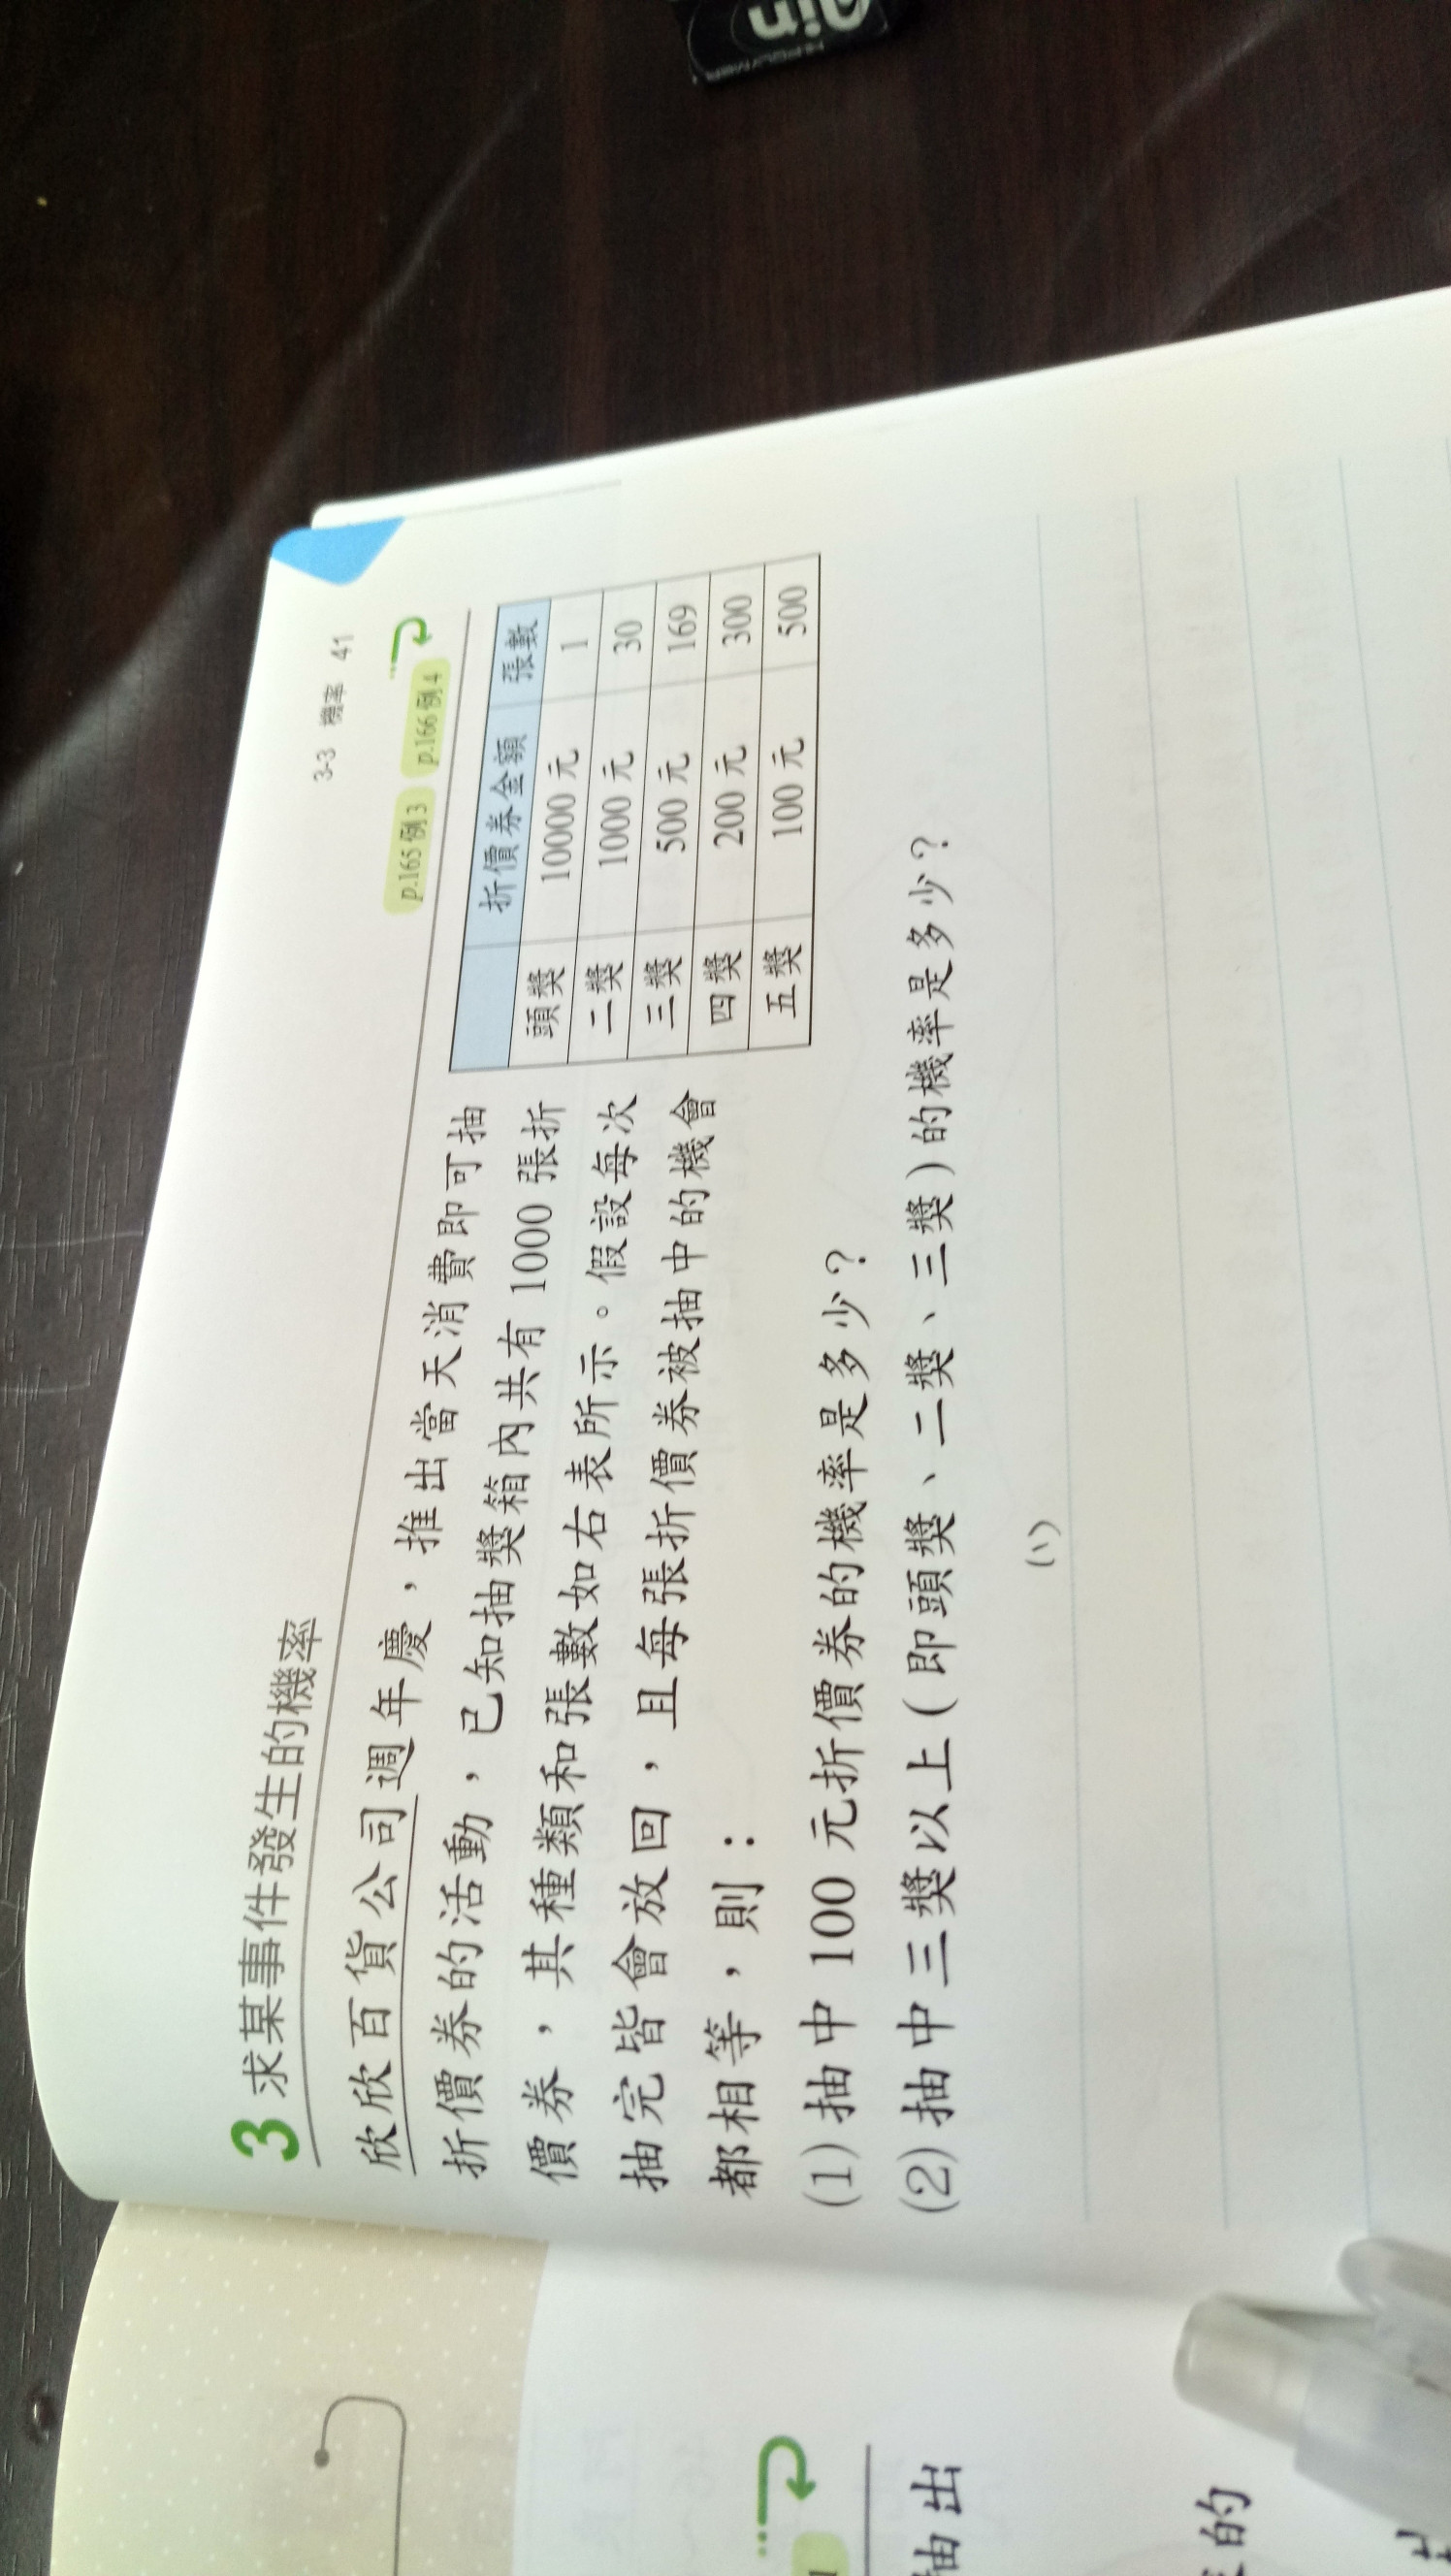 3-3 機率 41
3 求某事件發生的機率
p.165例3 p.166例4
欣欣百貨公司週年慶，推出當天消費即可抽
折價券的活動，已知抽獎箱內共有 1000 張折
價券，其種類和張數如右表所示。假設每次
抽完皆會放回，且每張折價券被抽中的機會
都相等，則：
折價券金額 張數
頭獎 10000 元 1
二獎 1000 元 30
三獎 500 元 169
四獎 200 元 300
五獎 100 元 500
(1) 抽中 100 元折價券的機率是多少？
(2) 抽中三獎以上（即頭獎、二獎、三獎）的機率是多少？
(1)
抽出
的
Ain
HI-POLYMER